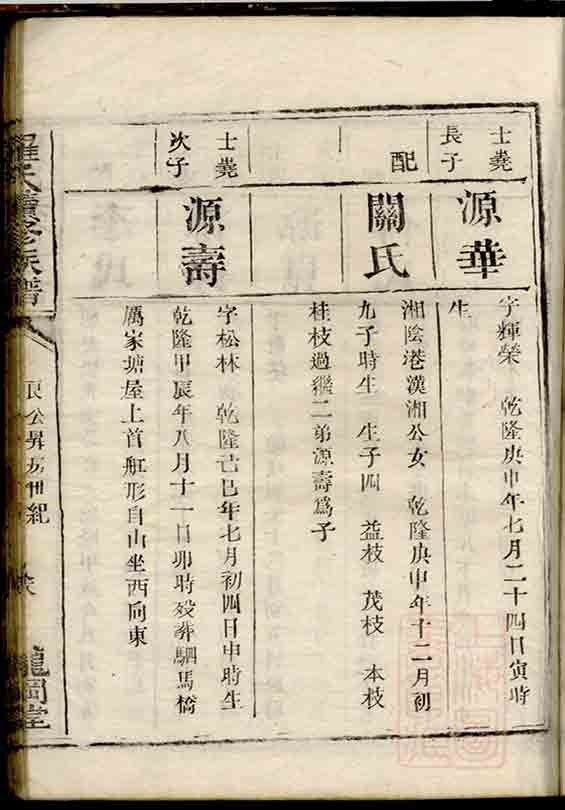 士堯
長子
源華
字輝榮 乾隆庚申年七月二十四日寅時
生
配
關氏
湘陰港漢湘公女 乾隆庚申年十二月初
九子時生 生子四 益枝 茂枝 本枝
桂枝過繼二弟源壽爲子
士堯
次子
源壽
字松林 乾隆己巳年七月初四日申時生
乾隆甲辰年八月十一日卯時歿葬駟馬橋
厲家塘屋上首缸形自山坐西向東
羅氏續修族譜
龍岡堂